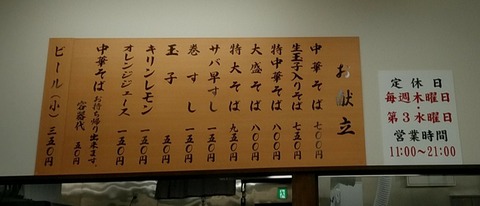 お献立
中華そば 七〇〇円
生玉子入りそば 七五〇円
特中華そば 八〇〇円
大盛そば 八〇〇円
特大そば 九五〇円
サバ早すし 一五〇円
巻すし 一五〇円
玉子 五〇円
キリンレモン 一五〇円
オレンジジュース 一五〇円
中華そば お持ち帰り出来ます。
容器代 五〇円
ビール(小) 三五〇円
定休日
毎週木曜日
・
第3水曜日
営業時間
11:00~21:00